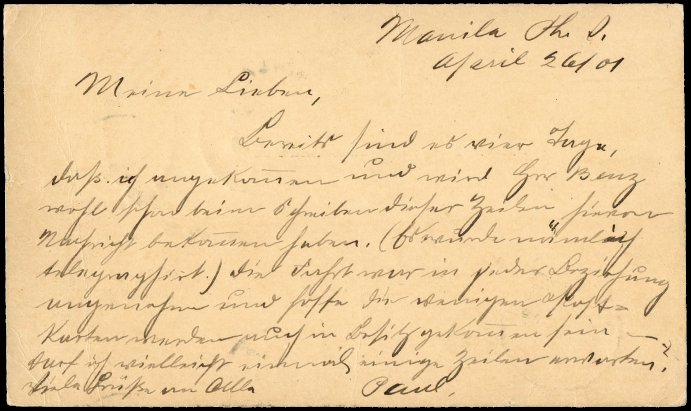 Manila Ph. I.
April 26/01
Meine Lieben,
Bereits sind es vier Tage,
daß ich angekommen und wird Herr Benz
wohl schon beim Schreiben dieser Zeilen hievon
Nachricht bekommen haben. (Es wurde nämlich
telegraphirt.) Die Fahrt war in jeder Beziehung
angenehm und hoffe die wenigen Post=
Karten werden auch in Besitz gekommen sein –
Darf ich vielleicht einmal einige Zeilen erwarten?
Viele Grüße an Alle Paul.